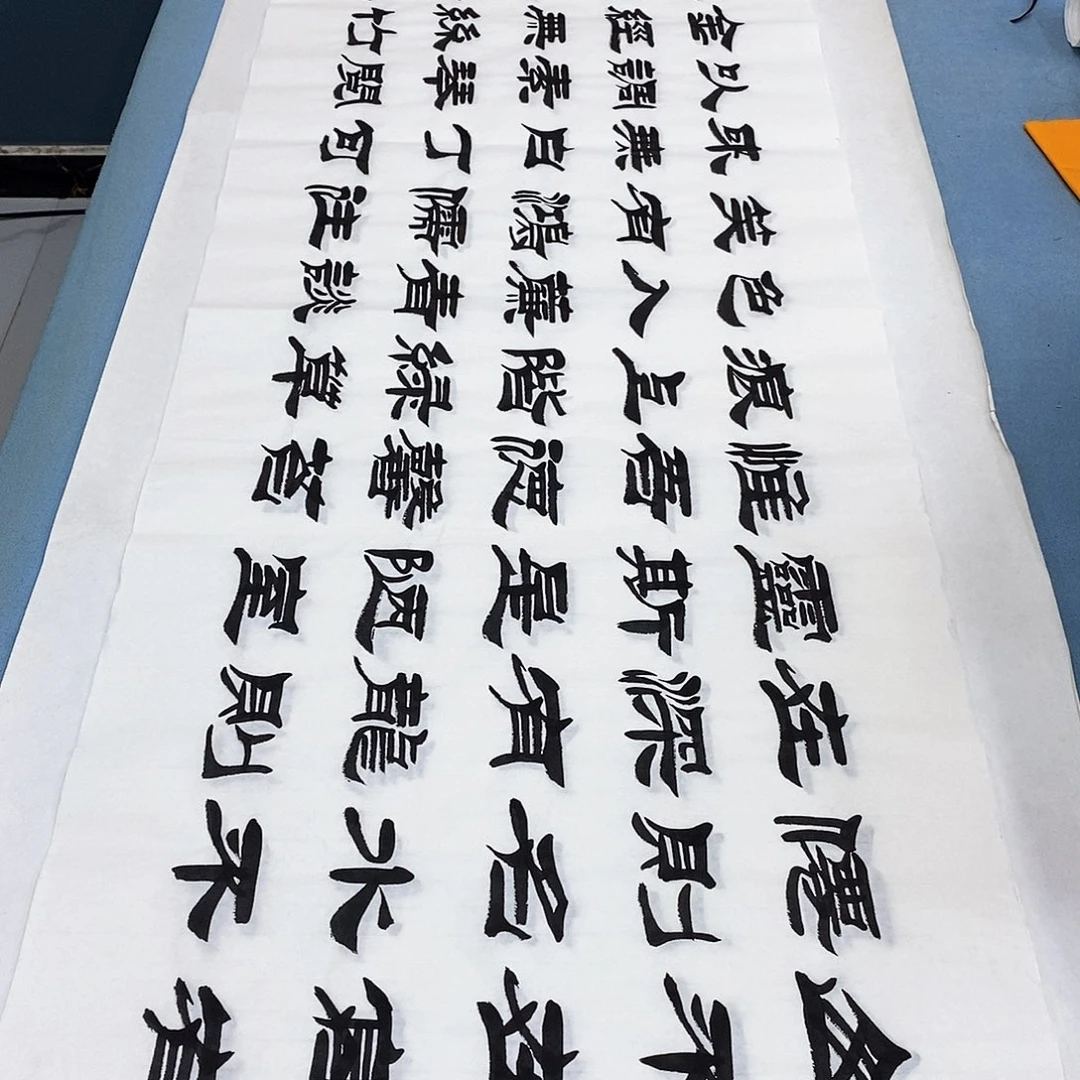 山不在高有
僊則名水不
在深有龍則
靈斯是陋室
惟吾德馨苔
痕上階綠草
色入簾青談
笑有鴻儒往
來無白丁可
以調素琴閱
金經無絲竹